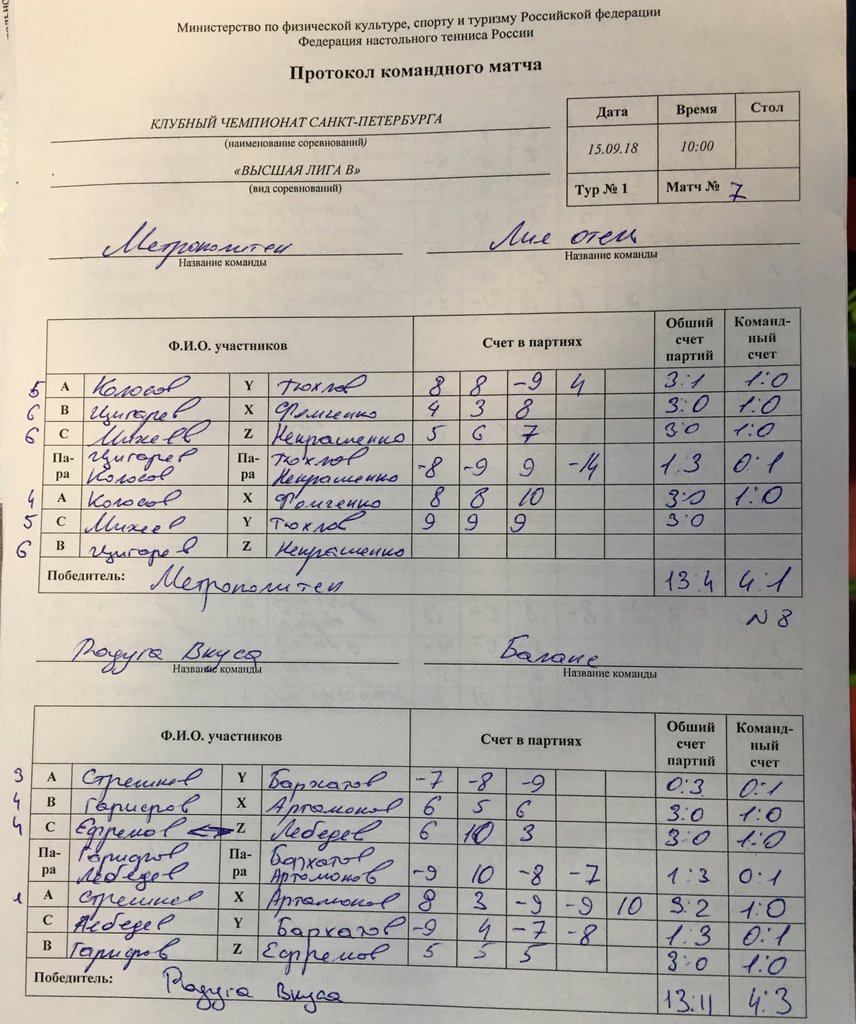 Министерство по физической культуре, спорту и туризму Российской федерации
Федерация настольного тенниса России
Протокол командного матча
КЛУБНЫЙ ЧЕМПИОНАТ САНКТ-ПЕТЕРБУРГА
(наименование соревнований)
«ВЫСШАЯ ЛИГА В»
(вид соревнований)
Дата Время Стол
15.09.18 10:00
Тур № 1 Матч № 7
Метрополитен Лие отец
Название команды Название команды
Ф.И.О. участников Счет в партиях Обший счет партий Команд-ный счет
5 А Колосов Y Тюхлов 8 8 -9 4 3:1 1:0
6 В Цигарев X Фомченко 4 3 8 3:0 1:0
6 С Михеев Z Некрашенко 5 6 7 3:0 1:0
Па-ра Цигарев Колосов Па-ра Тюхлов Некрашенко -8 -9 9 -14 1:3 0:1
4 А Колосов X Фомченко 8 8 10 3:0 1:0
5 С Михеев Y Тюхлов 9 9 9 3:0
6 В Цигарев Z Некрашенко
Победитель: Метрополитен 13:4 4:1
N 8
Радуга Вкуса Баланс
Название команды Название команды
Ф.И.О. участников Счет в партиях Обший счет партий Команд-ный счет
3 А Стрешнев Y Бархатов -7 -8 -9 0:3 0:1
4 В Гарифров X Артамонов 6 5 6 3:0 1:0
4 С Ефремов Z Лебедев 6 10 3 3:0 1:0
Па-ра Гарифров Лебедев Па-ра Бархатов Артамонов -9 10 -8 -7 1:3 0:1
1 А Стрешнев X Артамонов 8 3 -9 -9 10 3:2 1:0
С Лебедев Y Бархатов -9 4 -7 -8 1:3 0:1
В Гарифров Z Ефремов 5 5 5 3:0 1:0
Победитель: Радуга Вкуса 13:11 4:3